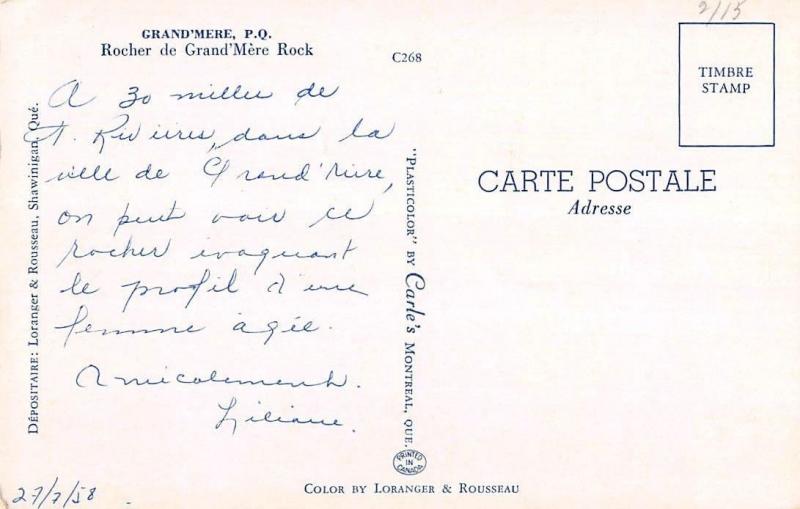 2/15
GRAND'MERE, P.Q.
Rocher de Grand'Mère Rock
C268
TIMBRE
STAMP
A 30 milles de
T. Rivières, dans la
ville de Grand'Mère,
on peut voir ce
rocher évoquant
le profil d'une
femme âgée.
Amicalement.
Liliane.
27/7/58
DÉPOSITAIRE: Loranger & Rousseau, Shawinigan, Qué.
"PLASTICOLOR" BY Carle's MONTREAL, QUE.
PRINTED
IN
CANADA
CARTE POSTALE
Adresse
COLOR BY LORANGER & ROUSSEAU